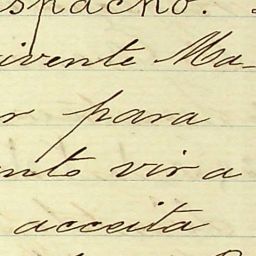 spacho.
ivente Ma-
r para
ento vir a
acceita